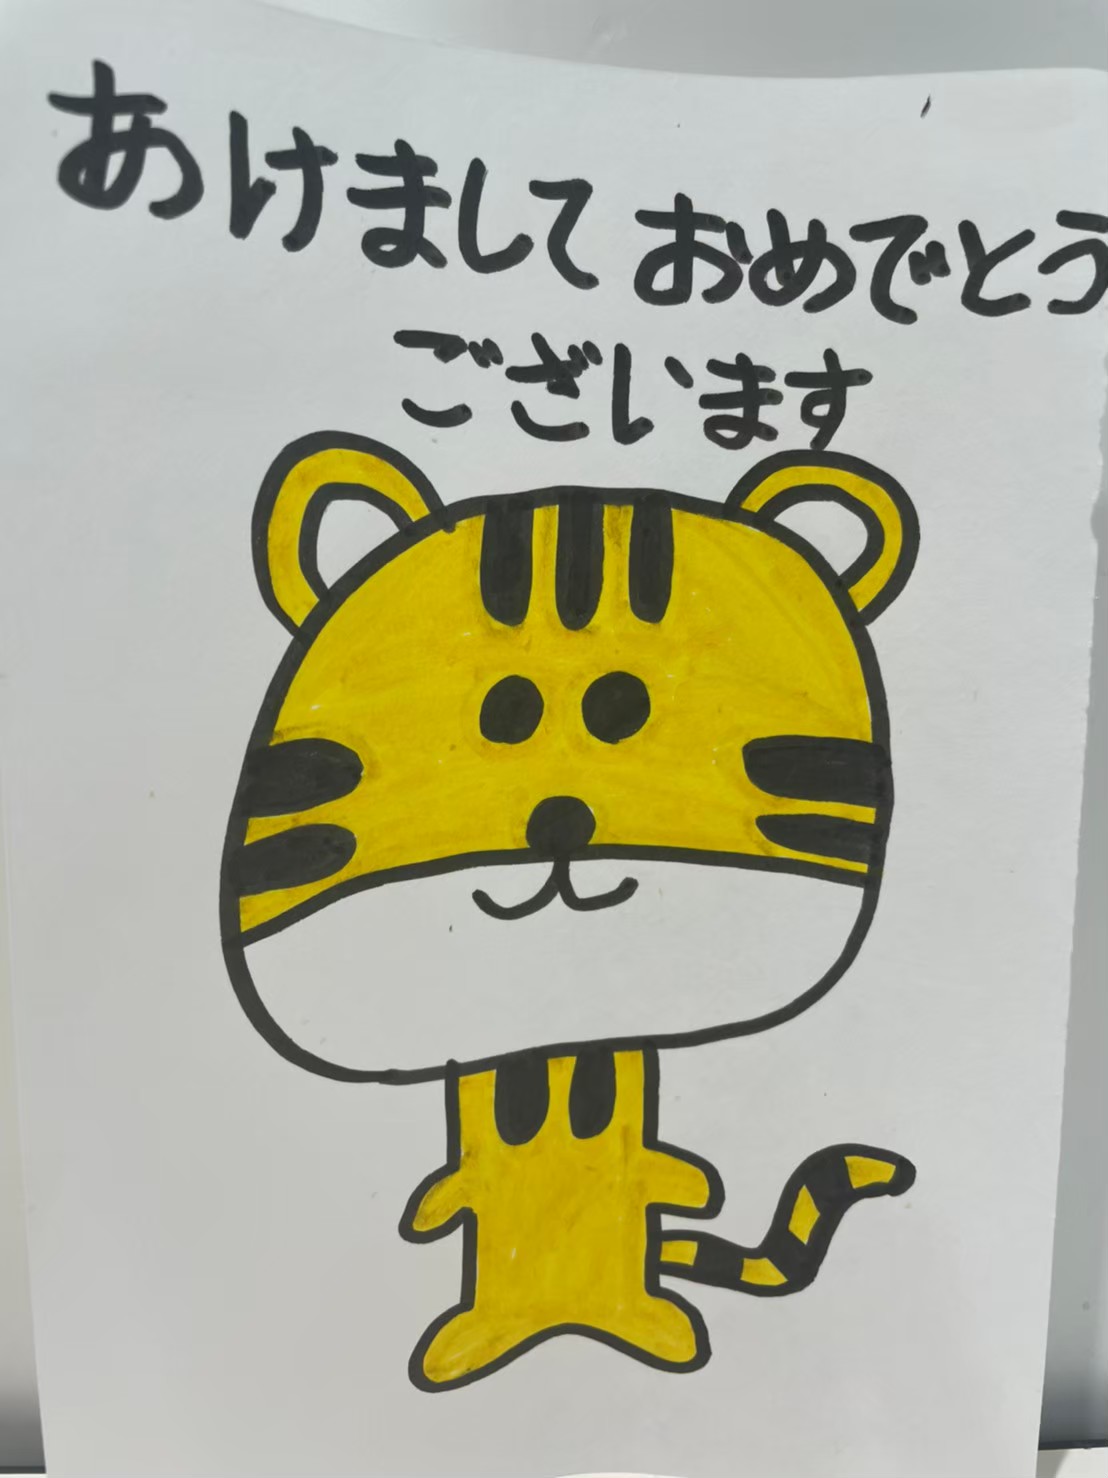 あけまして おめでとう
ございます